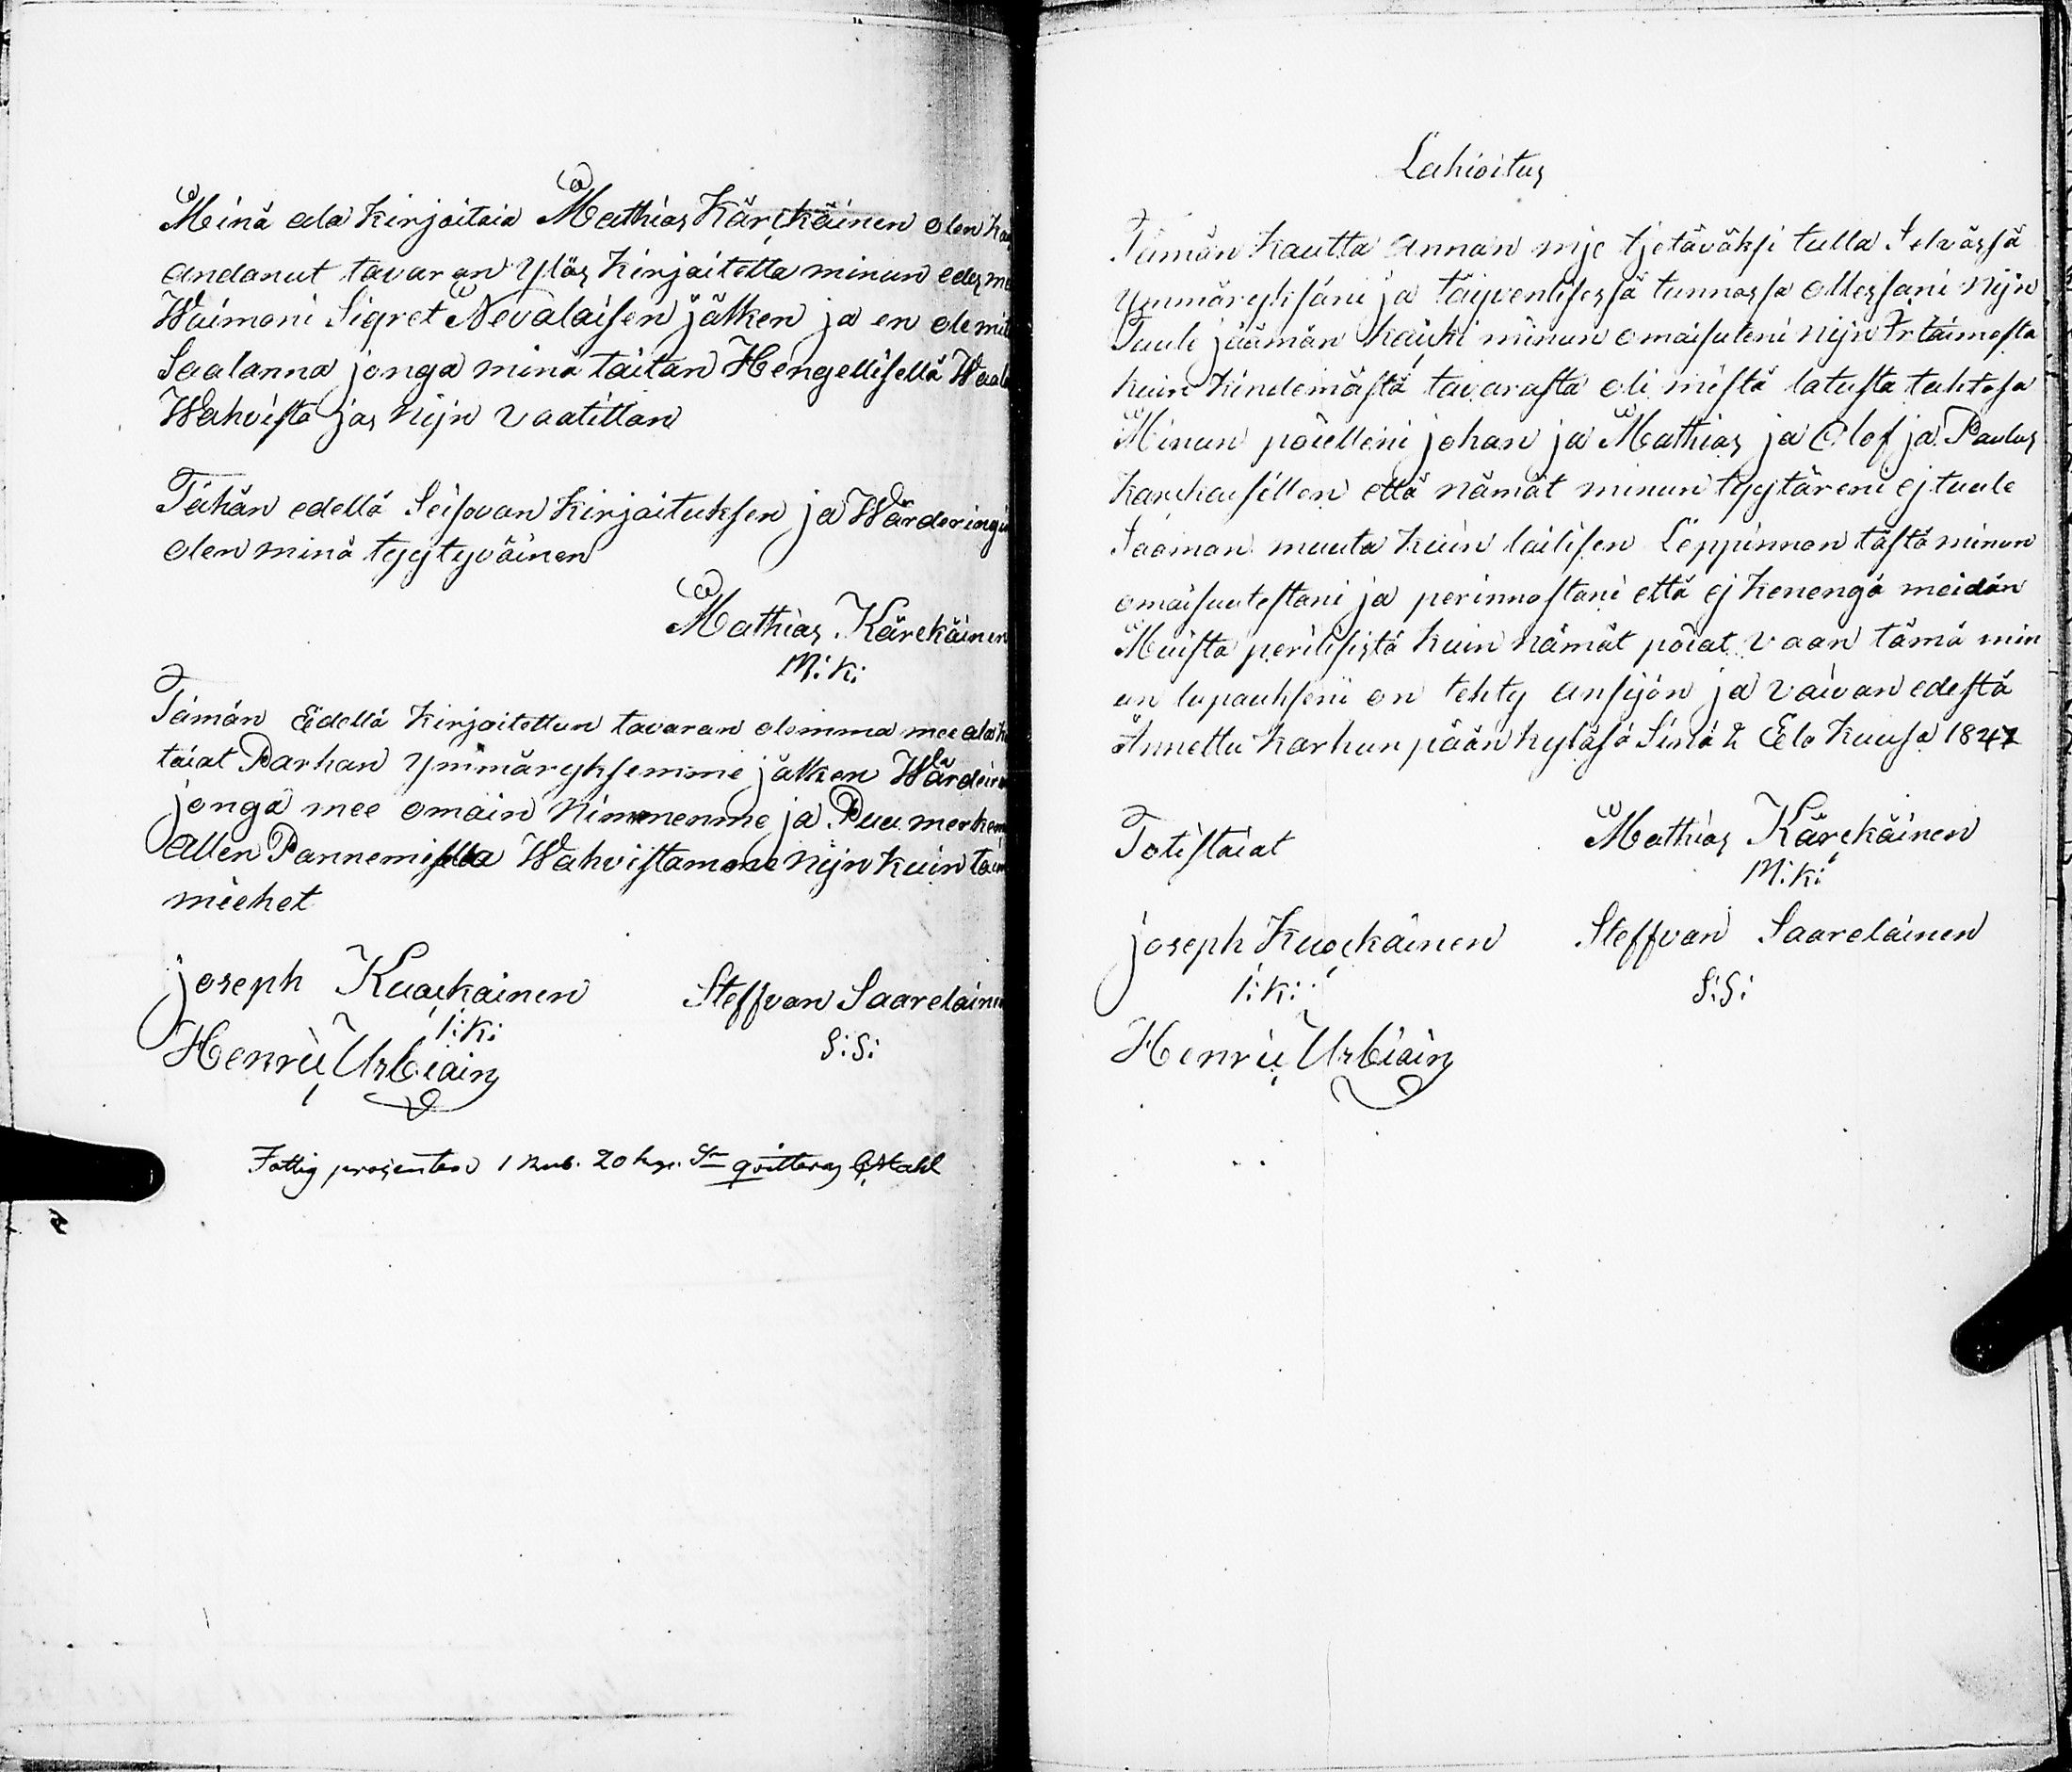 Minä ala Kirjoitaia Mathias Kärckäinen olen
andanut tavaran Ylös Kirjoitetta minun edes
Waimoni Sigret Nevalaisen jälken ja en ole
Saalanna jonga minä taitan Hengellisellä
Wahvista jos Nijn vaatittan
Tähän edellä Seisovan Kirjoituksen ja Wärderingin
olen minä tyytyväinen
Mathias Kärckäinen
M: K:
Tämän Edellä Kirjoitettun tavaran olemma mee ala
täiat Parhan Ymmäryksemme jälken
jonga mee omain Nimmenme ja Puu merkem
Allen Pannemisella Wahvistamme Nijn kuin
miehet
joseph Kuackainen Steffvan Saarelainen
I: K: S: S:
Henric Urbiain
Fattig prosenten 1 Rub. 20 kop. Sr qvitteras
Lahioitus
Tämän Kautta Annan nije tjetäväksi tulla Selvässä
Ymmäryksäni ja täyvenlisessä tunnossa ollessani Nijn
Tuule jäämän kaicki minun omaisuteni Nijn Irtaimesta
kuin kindemästä tavarasta oli mistä latusta tahtosa
Minun poielleni johan ja Mathias ja Olof ja Paulus
Karckaisillen että nämät minun tyytäreni ej tuule
Saaman muuta kuin lailisen Löppinnon tästä minun
omaisuutestani ja perinnostani että ej kenengä meidän
Muista perilisistä kuin nämät poiat vaan tämä min
un lupaukseni on tehty ansijon ja vaivan edestä
Annettu karhun pään kylässä Sinä 2 Elo Kuusa 1847
Totistaiat Mathias Kärckäinen
M: K:
joseph Kuockainen Steffvan Saarelainen
I: K: S: S:
Henric Urbiain